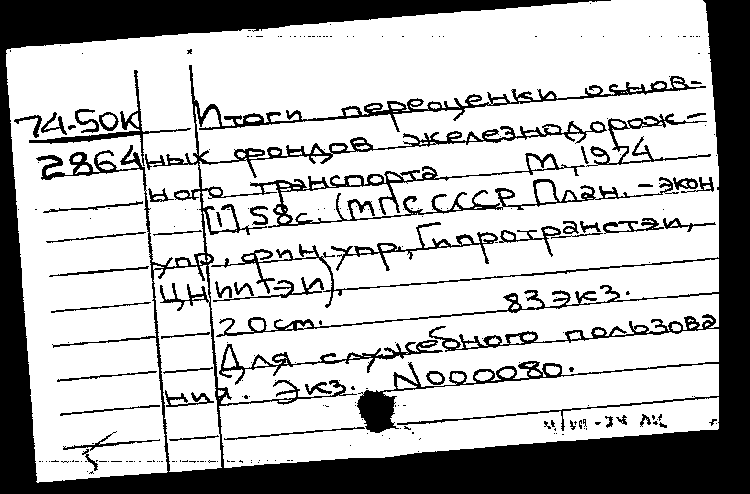 74-50К Итоги переоценки основ-
2864 ных фондов железнодорож-
ного транспорта. М., 1974.
[1], 58с. (МПС СССР. План. -экон.
упр., фин. упр., Гипротранстэи,
ЦНИИТЭИ).
20см. 83 экз.
Для служебного пользова
ния. Экз. N000080.